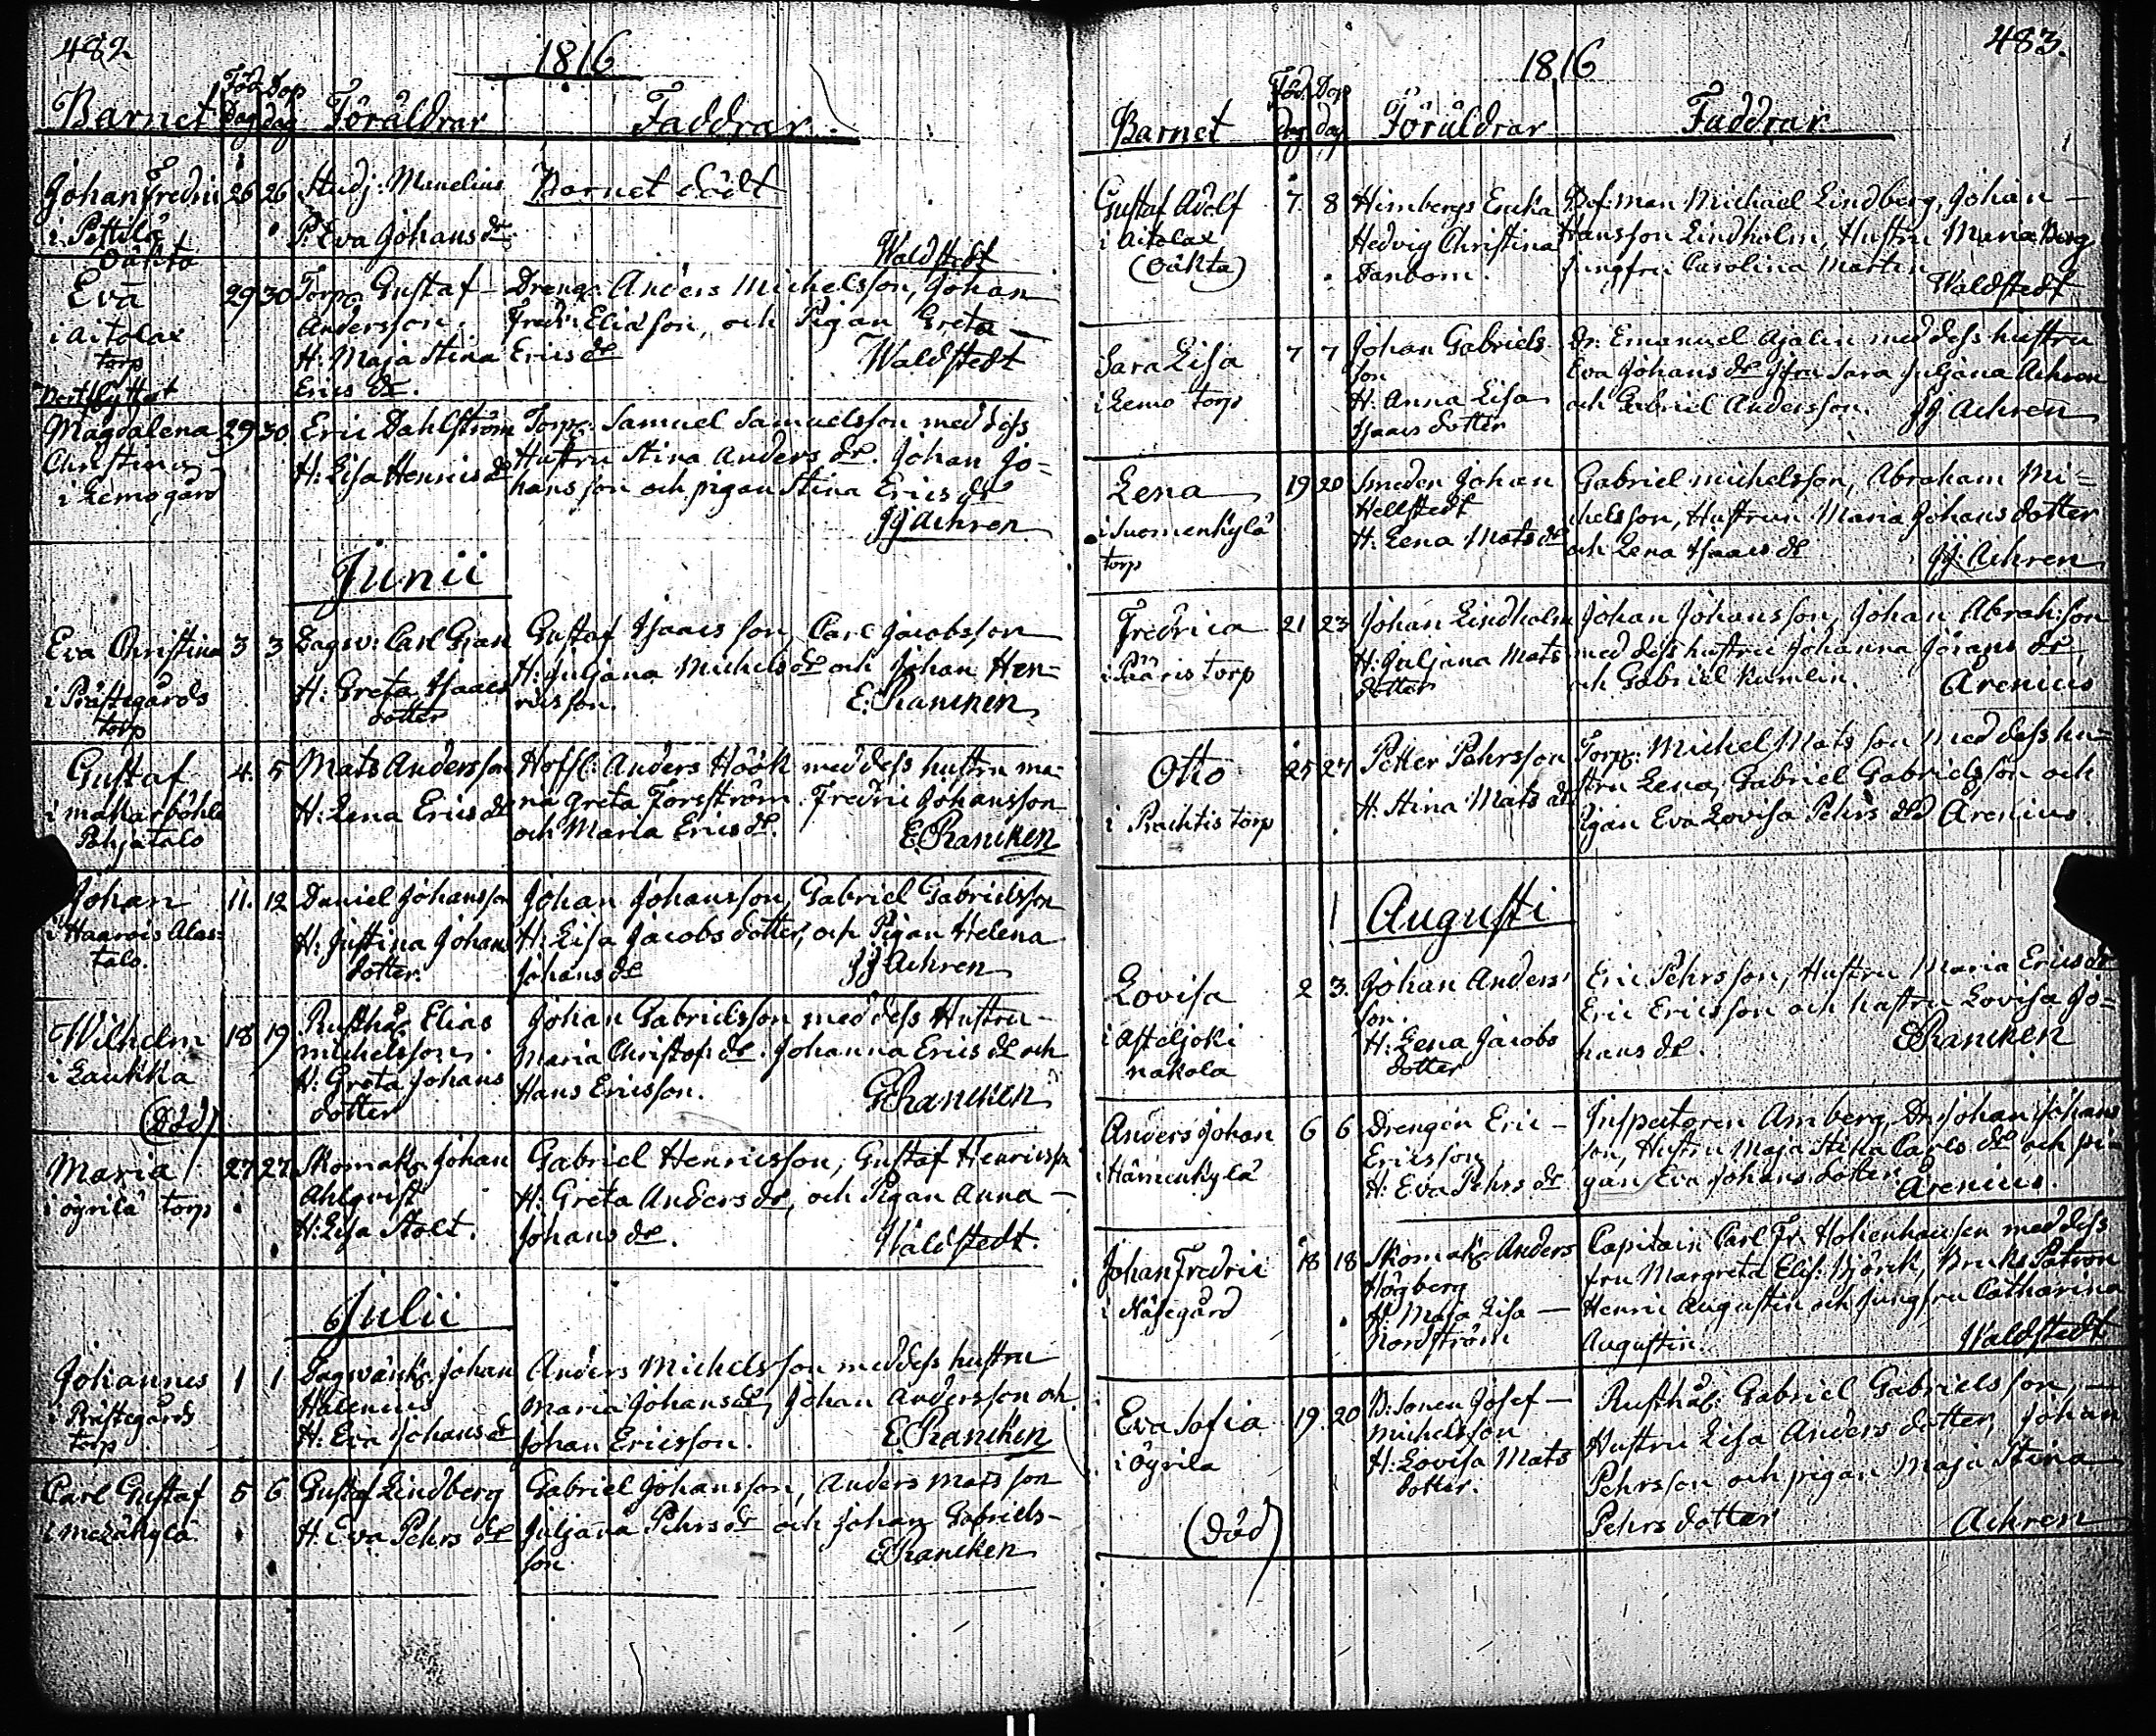 482
1816
Barnet Föd. Dag Dop dag Föräldrar Faddrar
Johan Fredric 26 26 Studj: Manelius Barnet dödt
i Pettilä P: Eva Johans dr
Oäkta Waldstedt
Eva 29 30 Torp: Gustaf Drengs: Anders Michelsson, Johan
i Aitolax Andersson. Fredr: Eliasson, och Pigan Greta
torp H: Maja Stina Erics dr Waldstedt
bortflyttat Erics dr.
Magdalena 29 30 Eric Dahlström Torp: Samuel Samuelsson med dess
Christina H: Lisa Henrics dr Hustru Stina Anders dr. Johan Jo=
i Lemo gård hansson och pigan Stina Erics dr
JJ Achren
Junii
Eva Christina 3 3 Dagw: Carl Gran Gustaf Isaacsson, Carl Jacobsson
i Prästegårds H: Greta Isaacs H: Juljana Michels dr och Johan Hen=
torp dotter ricsson. E: Rancken
Gustaf 4. 5 Mats Andersson Hofsl: Anders Höök med dess hustru ma=
i makarböhle H: Lena Erics dr ria Greta Forsström. Fredric Johansson
Pohjatalo och Maria Erics dr. E. Rancken
Johan 11. 12 Daniel Johansson Johan Johansson, Gabriel Gabrielsson
i Haarois Alas= H: Justina Johans H: Lisa Jacobs dotter, och Pigan Helena
talo. dotter. Johans dr JJ Achren
Wilhelm 18 19 Rusthåll: Elias Johan Gabrielsson med dess Hustru
i Laukka Michelsson. Maria Christof: dr. Johanna Erics dr och
H: Greta Johans Hans Ericsson. E Rancken
(död) dotter
Maria 27 27. Skomak: Johan Gabriel Henricsson, Gustaf Henricsson
i öyrilä torp Ahlqvist H: Greta Anders dr, och Pigan Anna
H: Lisa Stolt. Johans dr. Waldstedt.
Julii
Johannes 1 1 Dagwärk: Johan Anders Michelsson med dess hustru
i Prästegårds Halenius Maria Johans dr, Johan Andersson och
torp H: Eva Johans dr Johan Ericsson. E. Rancken
Carl Gustaf 5 6 Gustaf Lindberg Gabriel Johansson, Anders Matsson
i mezäkylä H: Eva Pehrs dr Juljana Pehrs dr och Johan Gabriels-
son E Rancken
483.
1816
Barnet Föd. Dag Dop dag Föräldrar Faddrar
Gustaf Adolf 7 8 Himbergs Enka Bef:man Michael Lindberg, Johan
i Aitolax Hedvig Christina Fransson Lindholm, Hustru Maria Berg
(oäkta) Danbom. jungfru Carolina Martin
Waldstedt
Sara Lisa 7 7 Johan Gabriels Dr: Emanuel Ajalin med dess hustru
i Lemo torp son Eva Johans dr Jfru Sara Juljana Achren
H: Anna Lisa och Gabriel Andersson. JJ Achren
Isaacs dotter
Lena 19 20 Smeden Johan Gabriel michelsson, Abraham Mi=
i Suomenkylä Hellstedt chelsson, Hustrun Maria Johans dotter
torp H: Lena Mats dr och Lena Isaacs dr JJ Achren
Fredrica 21 23 Johan Lindholm Johan Johansson, Johan Abrah:son
i Pääris torp H: Juljana Mats med dess hustru Johanna Jörans dr,
dotter och Gabriel Kumlin. Arenius
Otto 25 27 Petter Pehrsson Torp: Michel Matsson med dess hu=
i Prachtis torp H: Stina Mats dr stru Lena, Gabriel Gabrielsson och
Pigan Eva Lovisa Pehrs dr Arenius.
Augusti
Lovisa 2 3. Johan Anders Eric Pehrsson, Hustru Maria Erics dr
i Asteljoki son. Eric Ericsson och hustru Lovisa Jo=
nakola H: Lena Jacobs hans dr. E Rancken
dotter
Anders Johan 6 6 Drengen Eric Inspectoren Amberg, Dr: Johan Johans
i Hämenkylä Ericsson son, Hustru Maja Stina Carls dr och pi=
H: Eva Pehrs dr gan Eva Johans dotter. Arenius.
Johan Fredric 18 18 Skomak: Anders Capitain Carl Fr. Hohenhausen med dess
i Näsegård Högberg fru Margreta Elis: Björck, Bruks Patron
H: Maja Lisa Henric Augustin och Jungfru Catharina
Nordström Augustin. Waldstedt
Eva Sofia 19. 20 B: Sonen Josef Rusthåll: Gabriel Gabrielsson,
i öyrila Michelsson Hustru Lisa Anders dotter, Johan
H: Lovisa Mats Pehrsson och pigan Maja Stina
(död) dotter. Pehrs dotter Achren